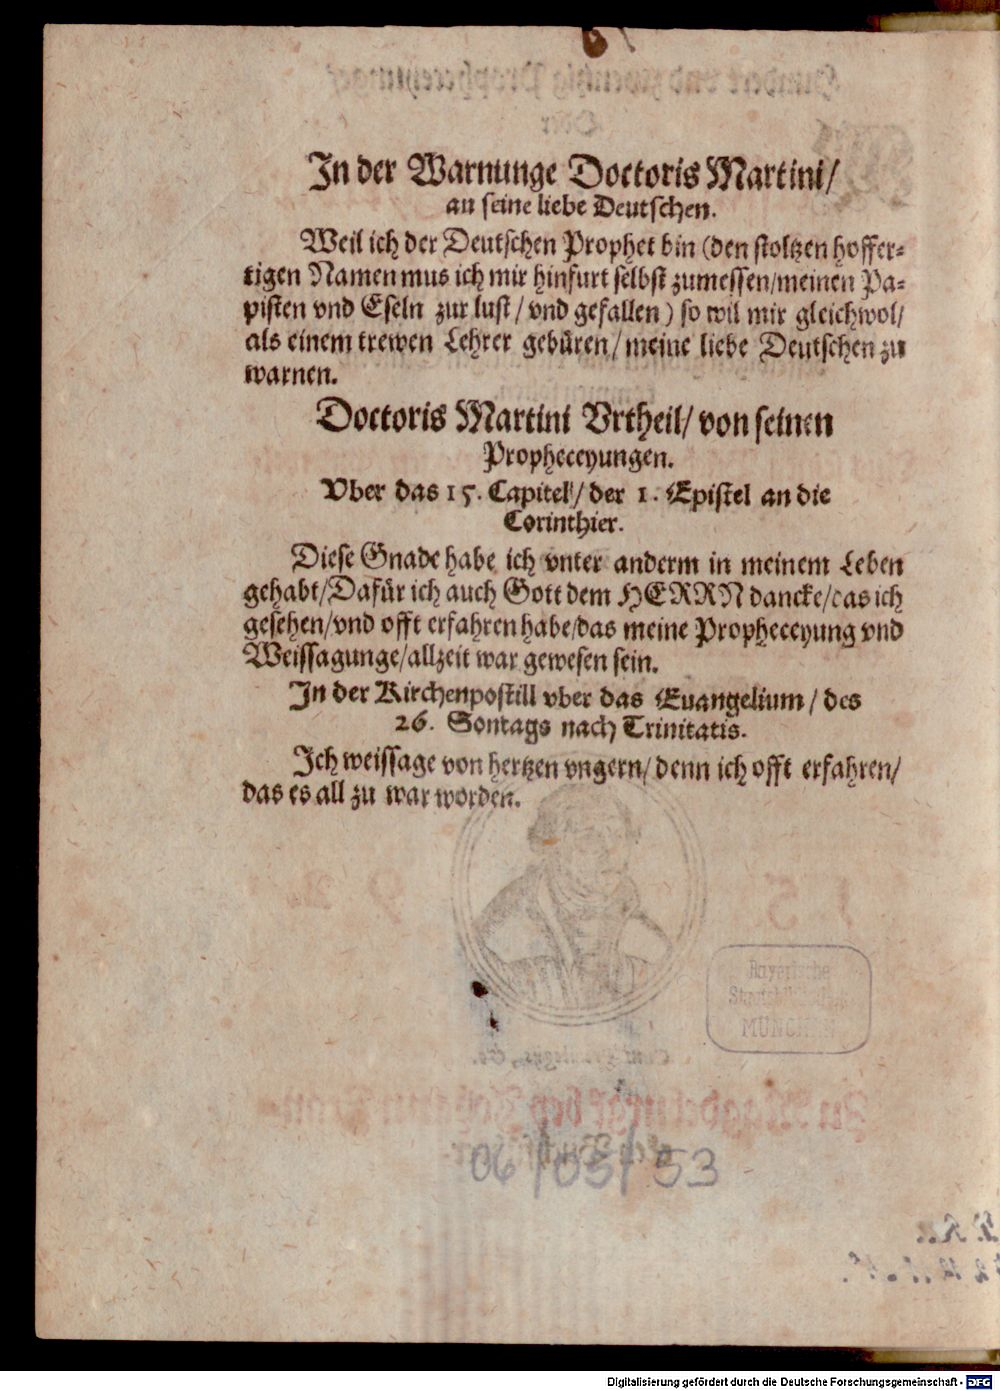 In der Warnunge Doctoris Martini/
an seine liebe Deutschen.
Weil ich der Deutschen Prophet bin (den stoltzen hoffer-
tigen Namen mus ich mir hinfurt selbst zumessen/meinen Pa-
pisten vnd Eseln zur lust/ vnd gefallen) so wil mir gleichwol/
als einem trewen Lehrer gebüren/ meine liebe Deutschen zu
warnen.
Doctoris Martini Vrtheil/ von seinen
Propheceyungen.
Vber das 15. Capitel/ der 1. Epistel an die
Corinthier.
Diese Gnade habe ich vnter anderm in meinem Leben
gehabt/Dafür ich auch Gott dem HERRN dancke/das ich
gesehen/vnd offt erfahren habe/das meine Propheceyung vnd
Weissagunge/allzeit war gewesen sein.
In der Kirchenpostill vber das Euangelium/ des
26. Sontags nach Trinitatis.
Ich weissage von hertzen vngern/ denn ich offt erfahren/
das es all zu war worden.
Bayerische
Staatsbibliothek
MÜNCHEN
06/05/53
Digitalisierung gefördert durch die Deutsche Forschungsgemeinschaft - DFG